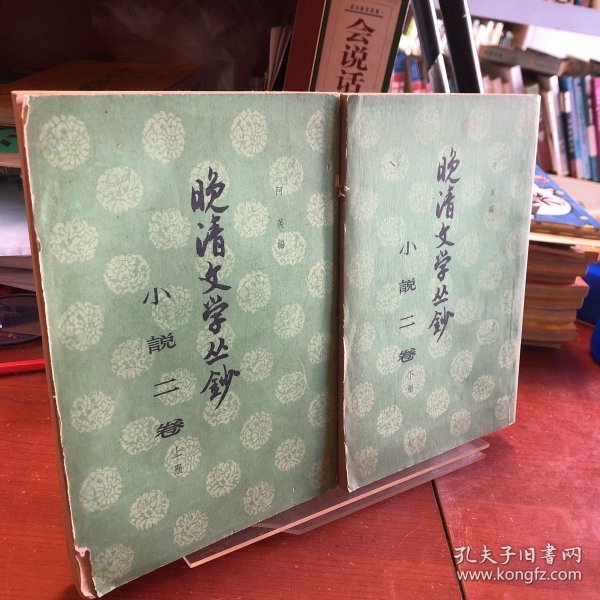 会说话
阿英編
晚清文学丛鈔
小說二卷
上册
阿英編
晚清文学丛鈔
小說二卷
下册
孔夫子旧书网
www.kongfz.com